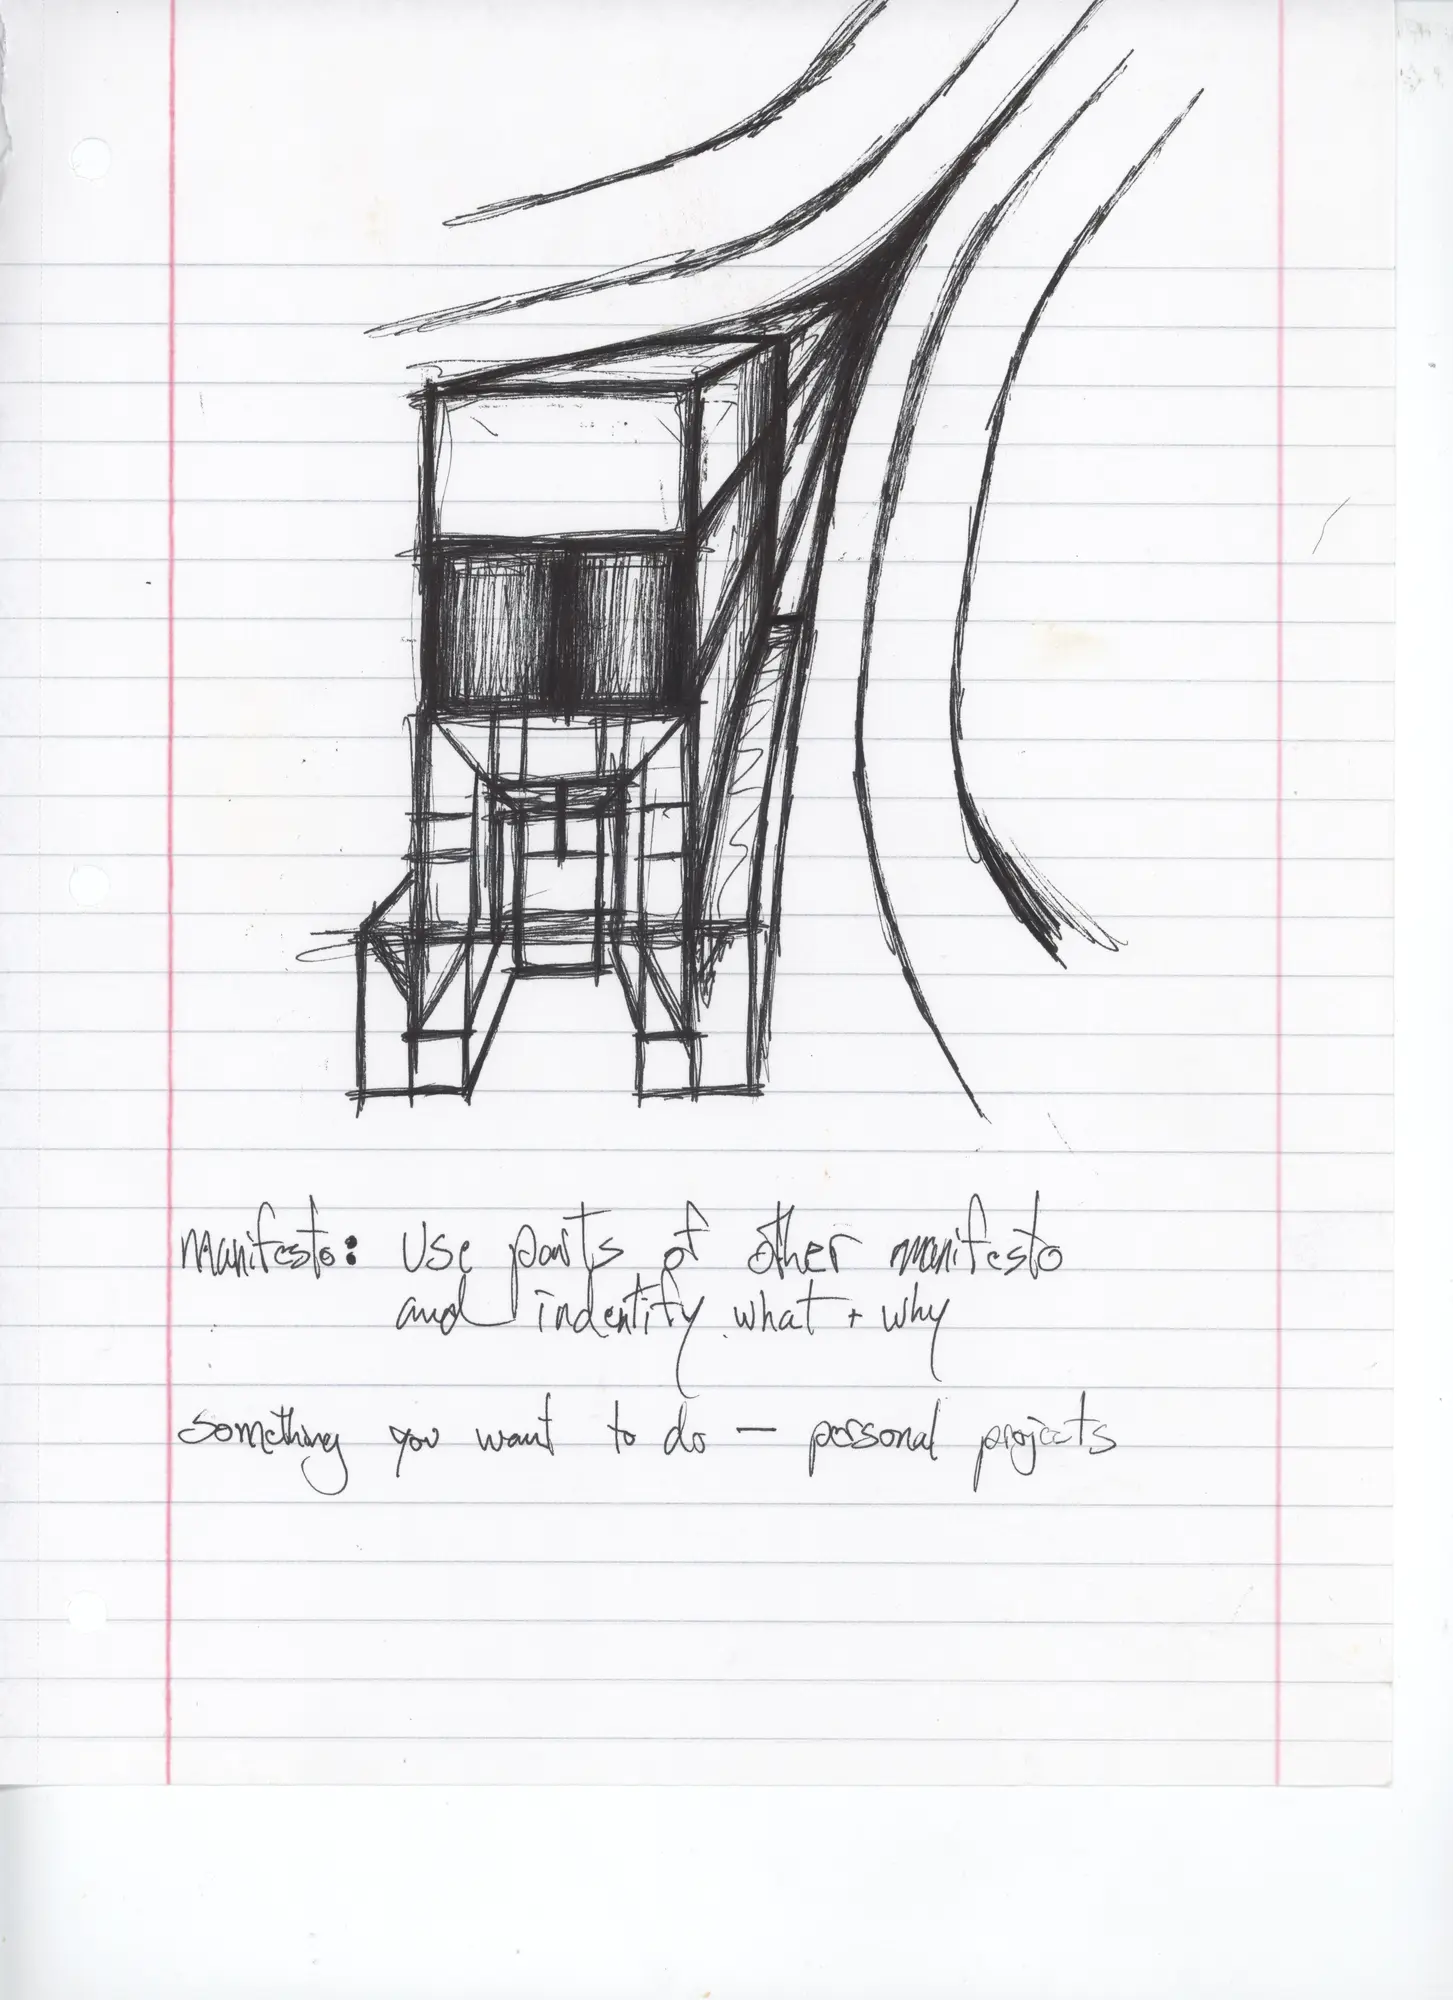 manifesto: Use parts of other manifesto
and indentify what + why
something you want to do — personal projects